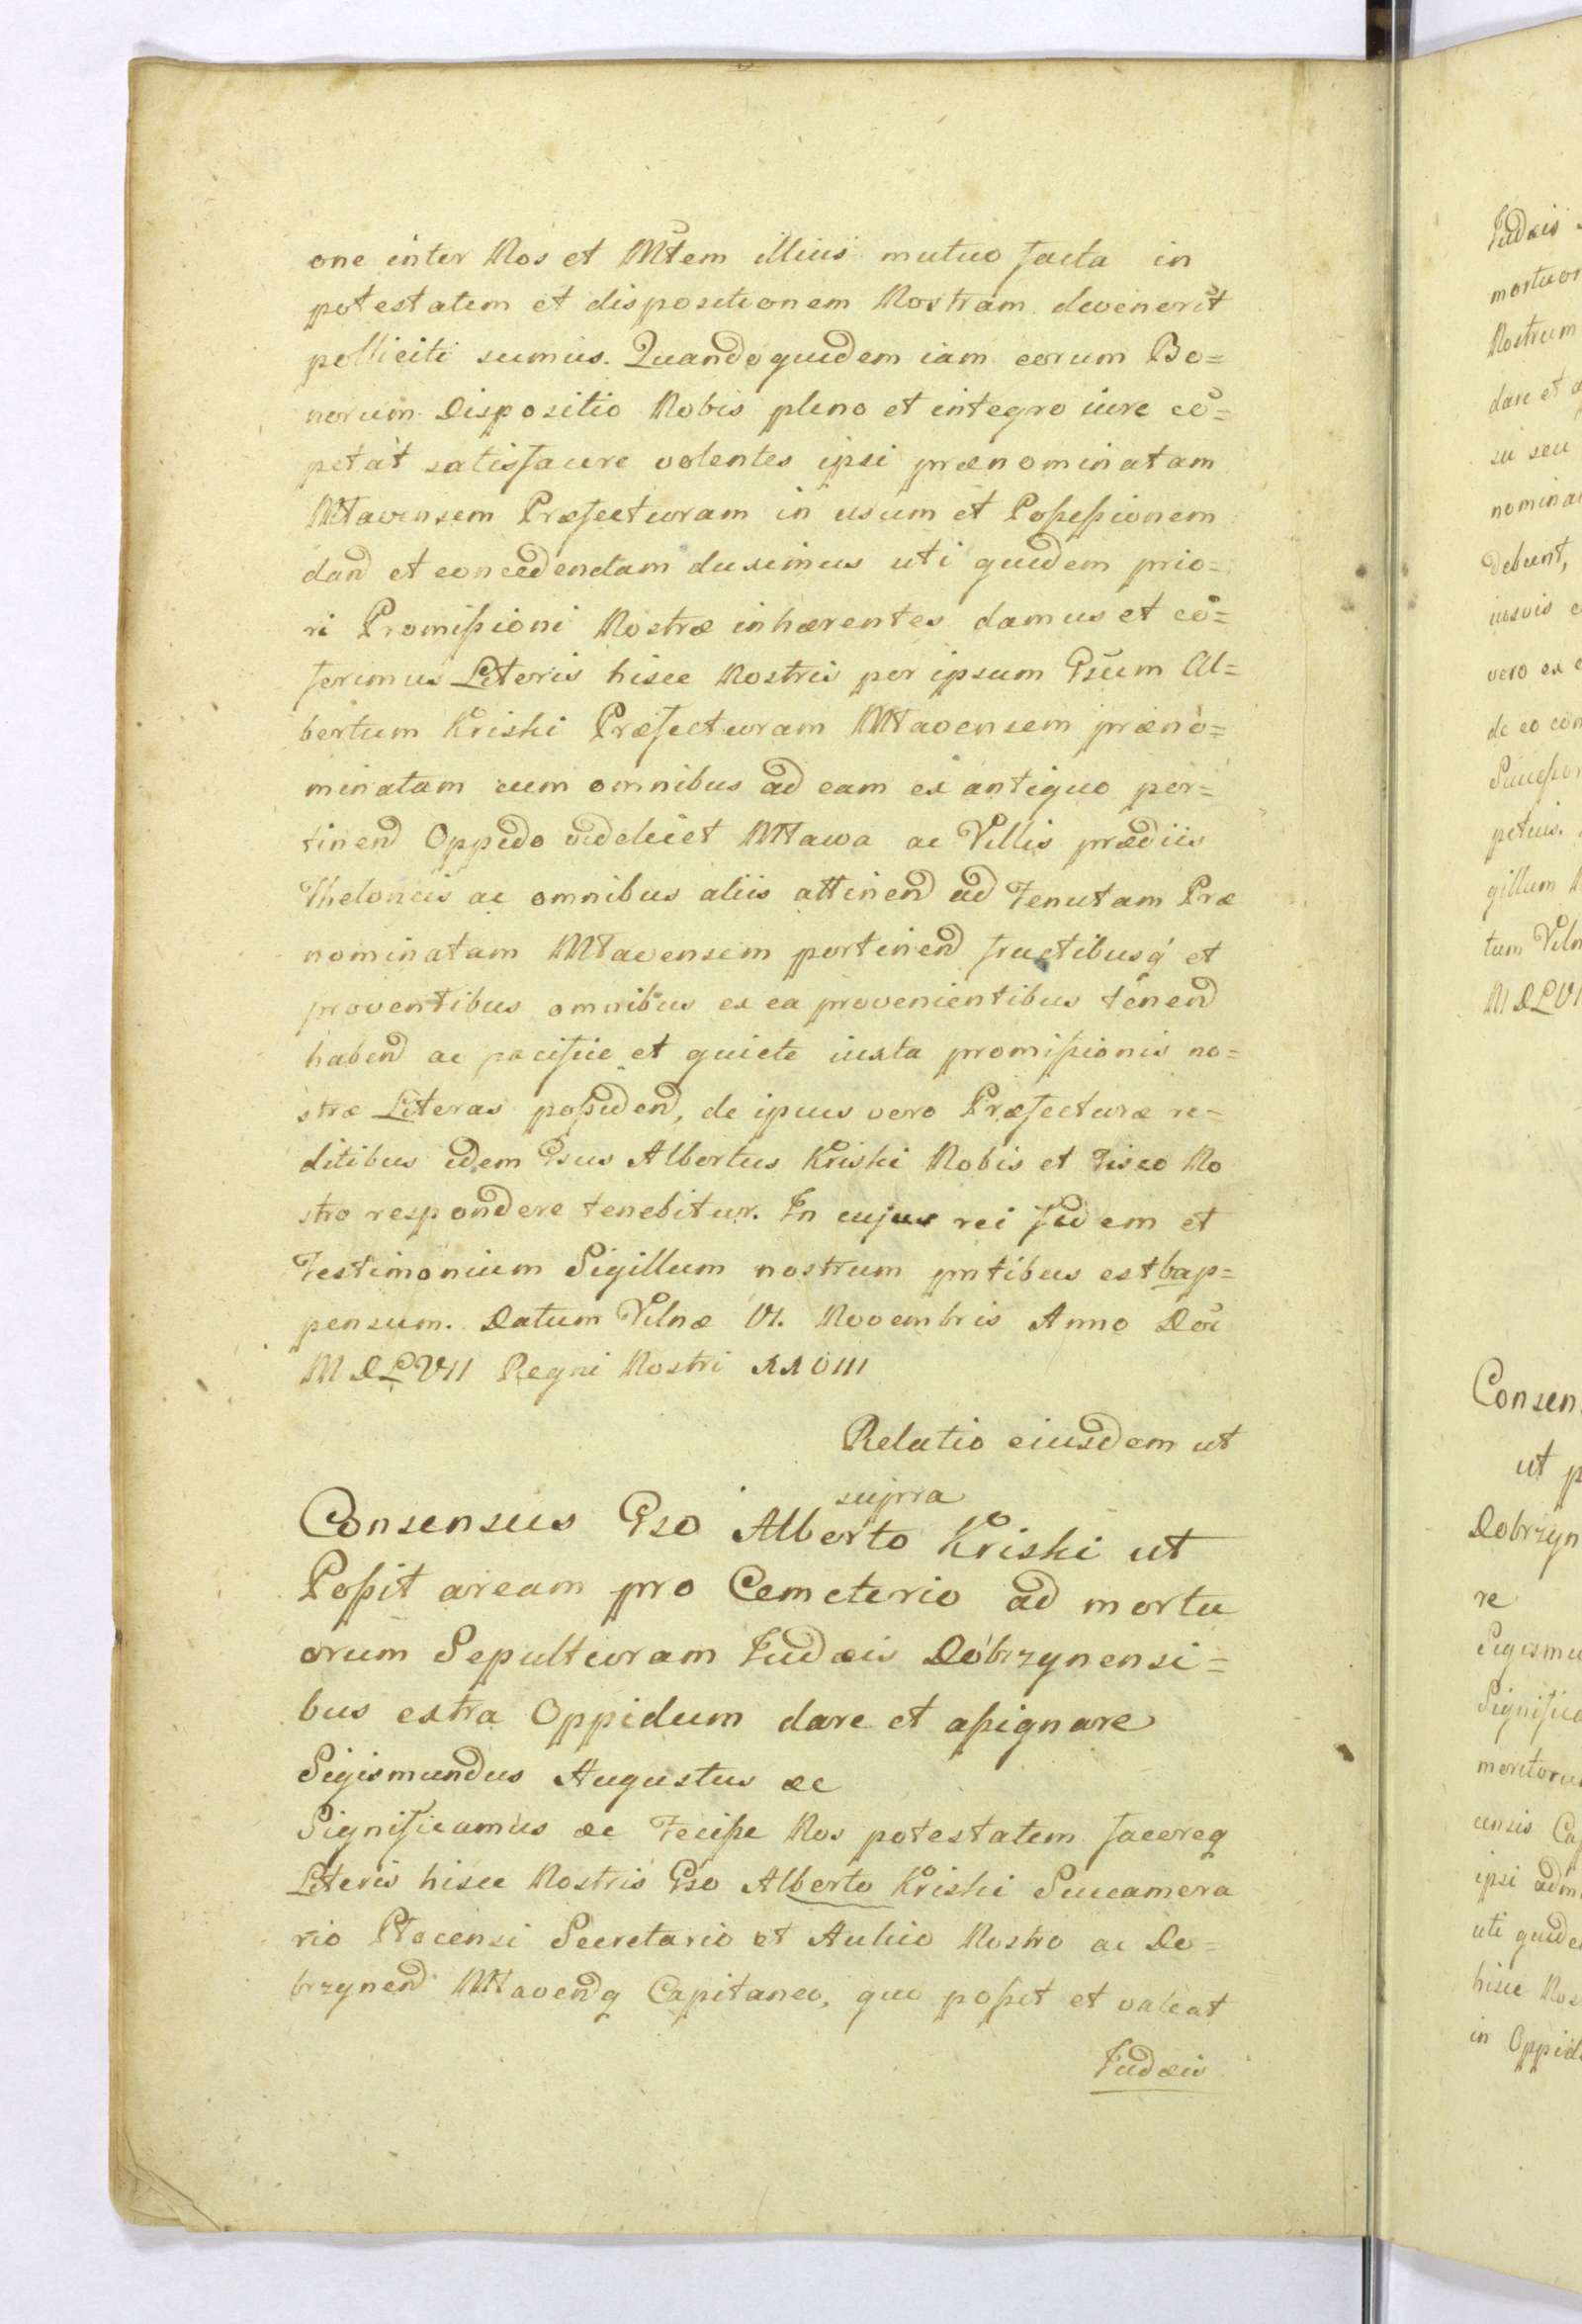 one inter Nos et Mtem illius mutuo facta in
potestatem et dispositionem Nostram devenerit
polliciti sumus. Quandoquidem iam eorum Bo=
norum Dispositio Nobis pleno et integro iure cõ=
petat satisfacere volentes ipsi prænominatam
Mławensem Præfecturam in usum et Poſseſsionem
dand et concedendam duximus uti quidem prio=
ri Promiſsioni Nostræ inhærentes damus et cõ=
ferimus Literis hisce Nostris per ipsum Gsũm Al=
bertum Kriski Præfecturam Mławensem præno=
minatam cum omnibus ad eam ex antiquo per=
tinend Oppido videlicet Mława ac Villis prædiis
Theloneis ac omnibus aliis attinend ad Tenutam Præ
nominatam Mławensem pertinend fructibusq et
proventibus omnibus ex ea provenientibus tenend
habend ac pacifice et quiete iuxta promiſsionis no=
stræ Literas poſsidend, de ipsius vero Præfecturæ re=
ditibus idem Gsus Albertus Kriski Nobis et Fisco No
stro respondere tenebitur. In cujus rei fidem et
Testimonium Sigillum nostrum pntibus est ap=
pensum. Datum Vilnæ VI. Novembris Anno Dõi
MDLVII Regni Nostri XXVIII
Relatio eiusdem ut
supra
Consensus Gso Alberto Kriski ut
Poſsit aream pro Cemeterio ad mortu
orum Sepulturam Judæis Dobrzynensi=
bus extra Oppidum dare et aſsignare
Sigismundus Augustus &c
Significamus &c Feciſse Nos potestatem facereq
Literis hisce Nostris Gso Alberto Kriski Succamera
rio Płocensi Secretario et Aulico Nostro ac Do=
brzynend Mławendq Capitaneo, quo poſsit et valeat
Judæis
Judæis
mortuor
Nostrum
dare et
su seu
nomina
debent,
iusvis
vero ex
de eo con
Succeſsor
petuis.
gillum
tum Viln
MDLVI
Consen
ut p
Dobrzyn
re
Sigismu
Significa
meritoru
censis Ca
ipsi adm
uti quide
hisce Nos
in Oppid